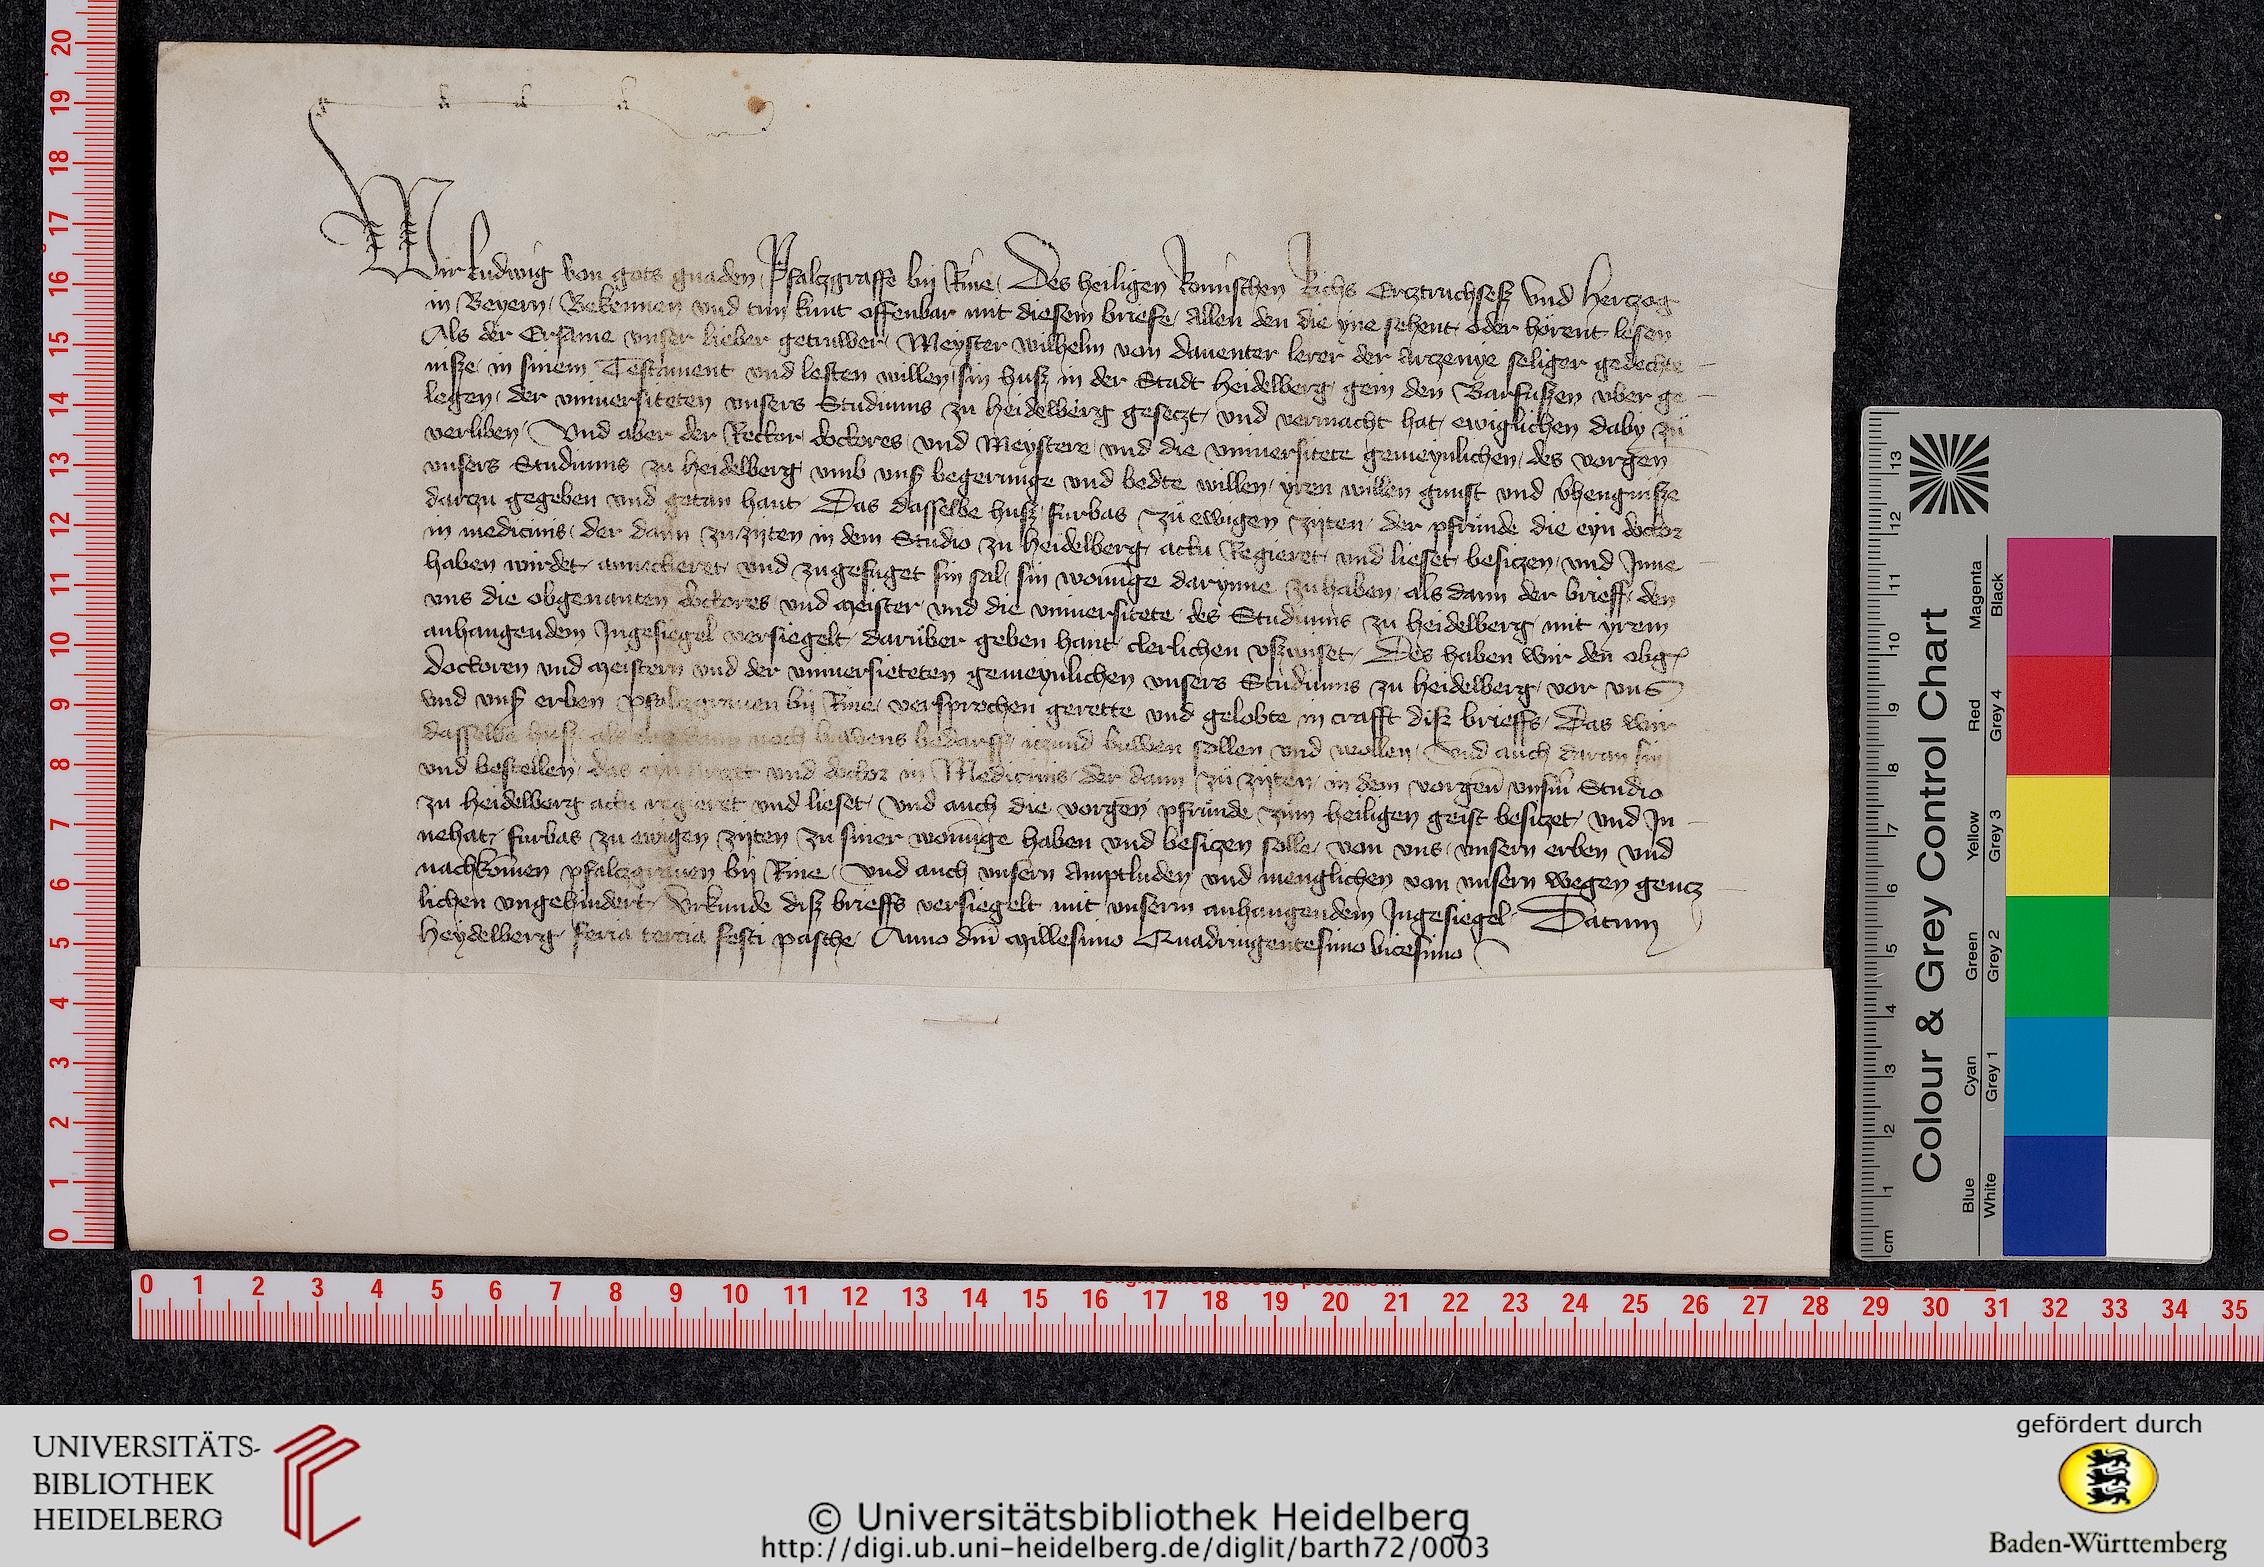 Wir Ludwig von gots gnaden Pfalzgraffe by Rine Des heiligen Romischen Richs Ercztruchsesz vnd Herczog
in Beyern Bekennen vnd tun kunt offenbar mit diesem briefe Allen den die yne sehent oder horent lesen
Als der Ersame vnser lieber getruwer Meyster wilhelm von dauenter lerer der Arczenye seliger gedecht
nisze in sinem Testament vnd lesten willen sin husz in der Stadt Heidelberg gein den Barfuszen vber ge
legen der vniuersiteten vnsers Studiums zu Heidelberg geseczt vnd vermacht hat ewiglichen daby zu
verliben Vnd aber der Rector doctores vnd Meystere vnd die vniuersitete gemeynlichen des vorgen
vnsers Studiums zu Heidelberg vmb vnß begerunge vnd bedte willen yren willen gunst vnd vhengnisze
darzu gegeben vnd getan hant Das dasselbe husz furbas zu ewigen zijten der pfrunde die eyn doctor
in medicinis der dann zu zijten in dem Studio zu Heidelberg actu Regieret vnd lieset besiczen vnd Inne
haben wirdet annecteret vnd zugefuget sin sal sin wonu̅ge darynne zu haben als dann der brieff den
vns die obgenanten doctores vnd meister vnd die vniuersitete des Studiums zu Heidelberg mit yrem
anhangendem Ingesiegel versiegelt daruber geben hant clerlichen vszwiset Des haben wir den obg
doctoren vnd meistern vnd der vniuersieteten gemeynlichen vnsers Studiums zu Heidelberg vor vns
vnd vnß erben pfalczgrauen by Rine versprochen gerette vnd gelobte in crafft disz brieffs Das wir
dasselbe husz als das dann noch buwens bedarff iczund buwen sollen vnd wollen Vnd auch daran sin
vnd bestellen das eyn Arczt vnd doctor in Medicinis der dann zu zijten in dem vorgen̅ vnsm̅ Studio
zu Heidelberg actu regieret vnd lieset vnd auch die vorgen̅ pfrunde zum heiligen geist besiczet vnd In
nehat furbas zu ewigen zijten zu siner wonu̅ge haben vnd besiczen solle von vns vnsern erben vnd
nachko̅men pfalczgrauen by Rine Vnd auch vnsern Amptluden vnd menglichen von vnsern wegen gencz
lichen vngehindert Vrkunde disz brieffs versiegelt mit vnserm anhangendem Ingesiegel Datum
Heydelberg feria tercia festi pasche Anno dni̅ Millesimo Quadringentesimo vicesimo
Colour & Grey Control Chart
Blue Cyan Green Yellow Red Magenta
White Grey 1 Grey 2 Grey 3 Grey 4 Black
cm 1 2 3 4 5 6 7 8 9 10 11 12 13
20 19 18 17 16 15 14 13 12 11 10 9 8 7 6 5 4 3 2 1 0
0 1 2 3 4 5 6 7 8 9 10 11 12 13 14 15 16 17 18 19 20 21 22 23 24 25 26 27 28 29 30 31 32 33 34 35
UNIVERSITÄTS-
BIBLIOTHEK
HEIDELBERG
© Universitätsbibliothek Heidelberg
http://digi.ub.uni-heidelberg.de/diglit/barth72/0003
gefördert durch
Baden-Württemberg